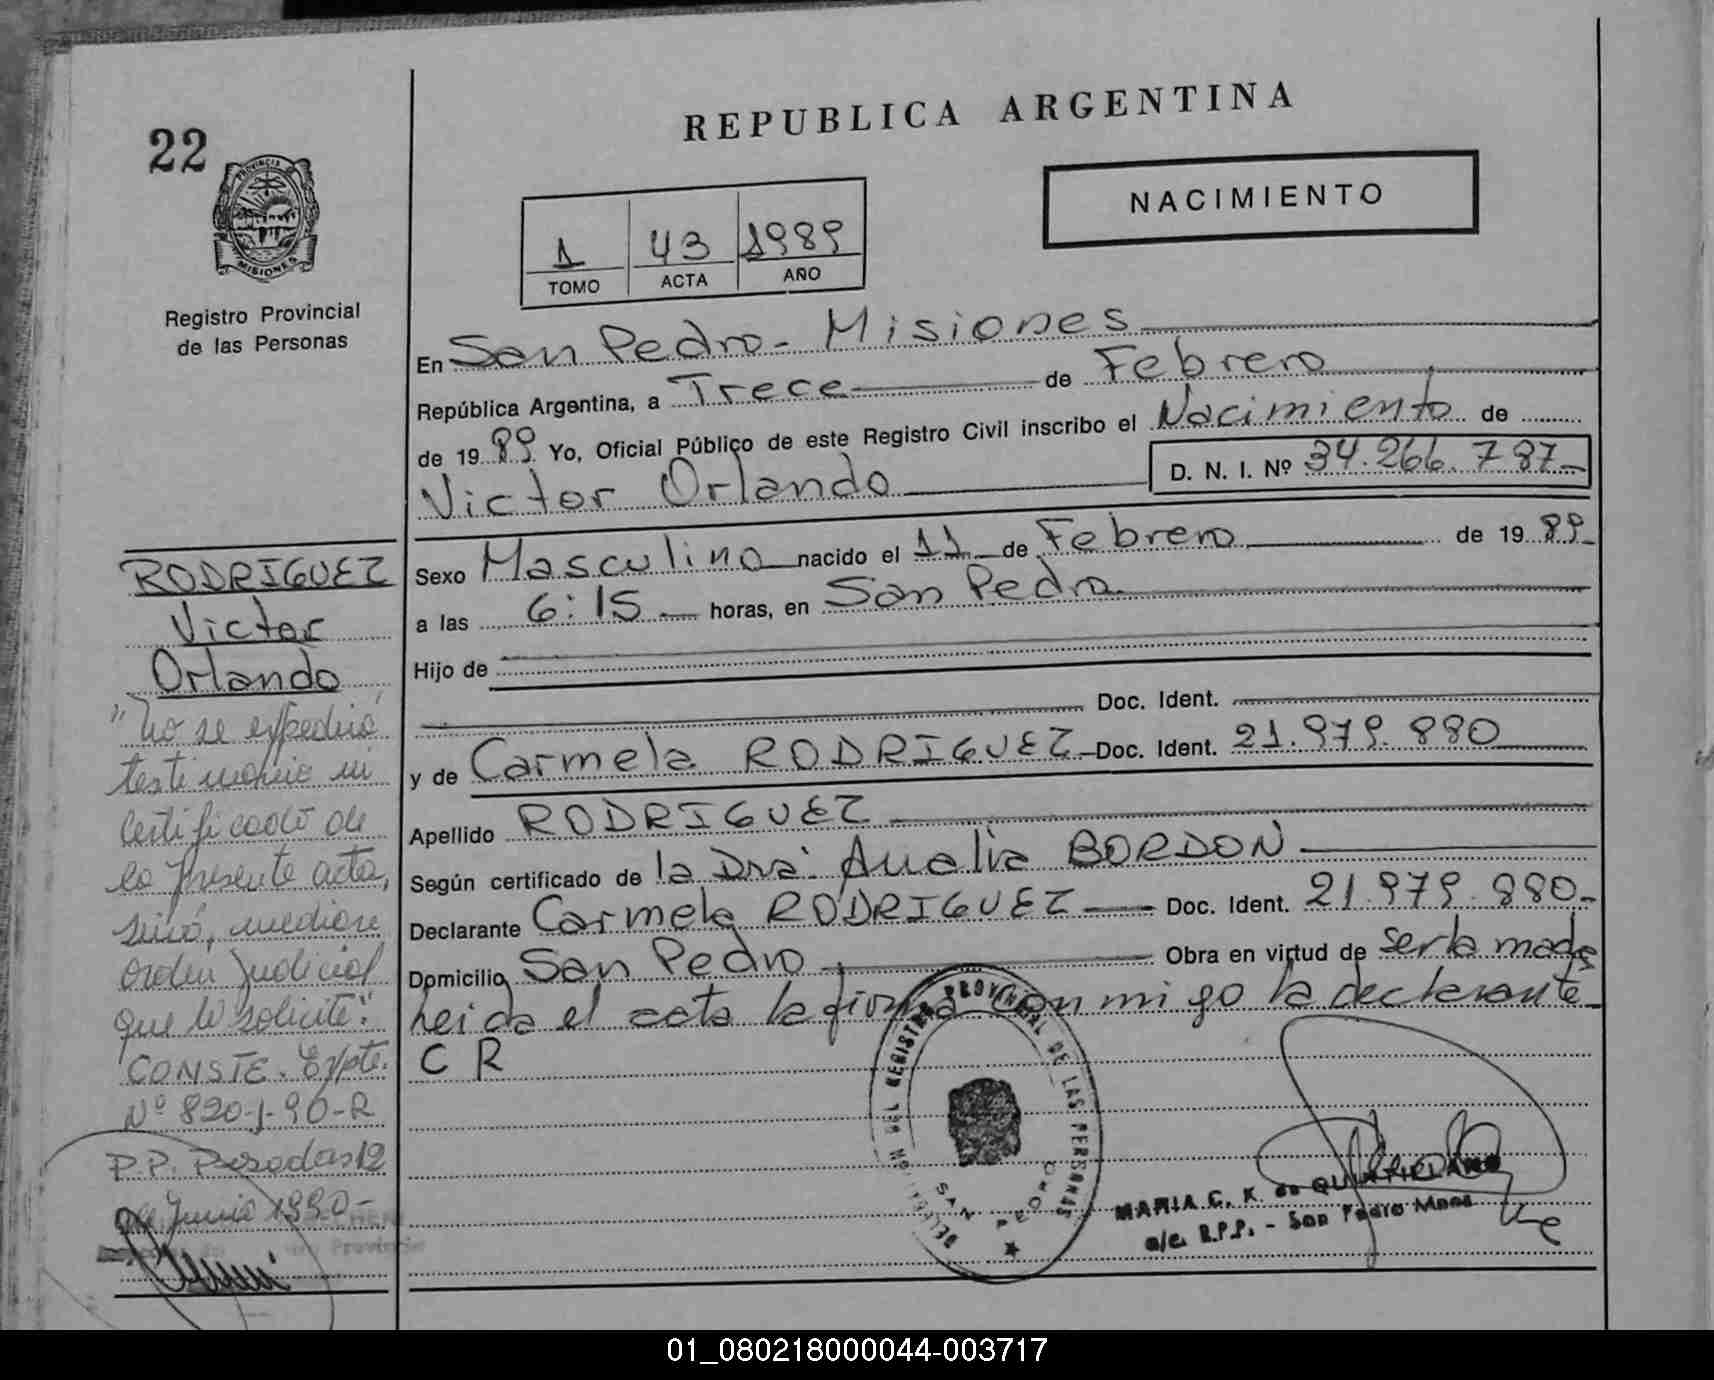 REPUBLICA ARGENTINA
22
NACIMIENTO
PROVINCIA
MISIONES
1 43 1989
TOMO ACTA AÑO
Registro Provincial
de las Personas
En San Pedro - Misiones
República Argentina, a Trece de Febrero
de 1989 Yo, Oficial Público de este Registro Civil inscribo el Nacimiento de
Victor Orlando D. N. I. Nº 34.266.787
Sexo Masculino nacido el 11 de Febrero de 1989
a las 6:15 horas, en San Pedro
Hijo de
Doc. Ident.
y de Carmela RODRIGUEZ Doc. Ident. 21.979.880
Apellido RODRIGUEZ
Según certificado de la Dra. Analia BORDON
Declarante Carmela RODRIGUEZ Doc. Ident. 21.979.880
Domicilio San Pedro Obra en virtud de ser la madre
Leida el acta la firma conmigo la declarante
C R
RODRIGUEZ
Victor
Orlando
"No se expedirá
testimonio ni
Certificado de
la presente acta,
sinó, mediare
Orden Judicial
que lo solicite".
CONSTE. Expte.
Nº 820-J-90-R
P.P. Posadas 12
de Junio 1990
REGISTRO PROVINCIAL DE LAS PERSONAS
SAN PEDRO
MARIA C. K. de
a/c. R.P.P. - San Pedro Mnes
01_080218000044-003717